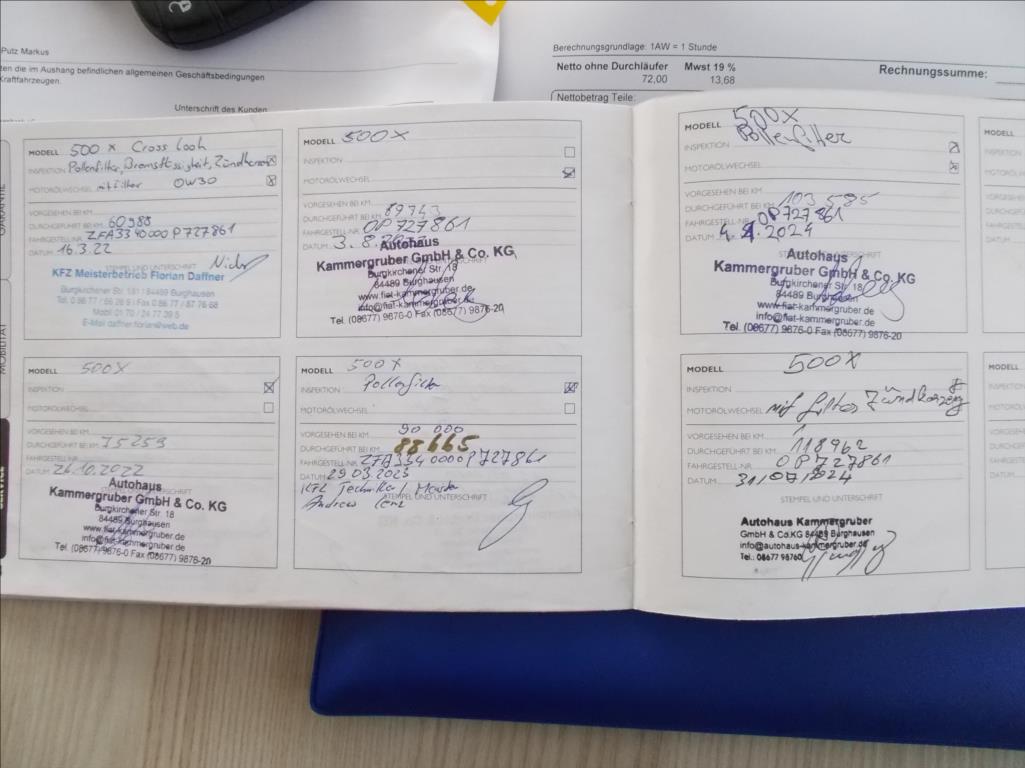 Putz Markus
ten die im Aushang befindlichen allgemeinen Geschäftsbedingungen
Kraftfahrzeugen.
Unterschrift des Kunden
Berechnungsgrundlage: 1AW = 1 Stunde
Netto ohne Durchläufer Mwst 19 % Rechnungssumme:
72,00 13,68
Nettobetrag Teile:
GARANTIE
MOBILITÄT
SERVICE
MODELL 500 X Cross look
INSPEKTION Pollenfilter, Bremsflüssigkeit, Zündkerzen
MOTORÖLWECHSEL mit filter 0W30
VORGESEHEN BEI KM
DURCHGEFÜHRT BEI KM 60988
FAHRGESTELL-NR. ZFA3340000P727861
DATUM 16.3.22
STEMPEL UND UNTERSCHRIFT
KFZ Meisterbetrieb Florian Daffner
Burgkirchener Str. 181 | 84489 Burghausen
E-Mail daffner.florian@web.de
MODELL 500X
INSPEKTION
MOTORÖLWECHSEL
VORGESEHEN BEI KM
DURCHGEFÜHRT BEI KM 89743
FAHRGESTELL-NR. 0P727861
DATUM 3.8.
Autohaus
Kammergruber GmbH & Co. KG
Burgkirchener Str. 18
84489 Burghausen
www.fiat-kammergruber.de
info@fiat-kammergruber.de
Tel. (08677) 9876-0 Fax (08677) 9876-20
MODELL 500X
INSPEKTION
MOTORÖLWECHSEL
VORGESEHEN BEI KM
DURCHGEFÜHRT BEI KM 75259
FAHRGESTELL-NR.
DATUM 26.10.2022
Autohaus
Kammergruber GmbH & Co. KG
Burgkirchener Str. 18
84489 Burghausen
www.fiat-kammergruber.de
info@fiat-kammergruber.de
Tel. (08677) 9876-0 Fax (08677) 9876-20
MODELL 500X
INSPEKTION
MOTORÖLWECHSEL
VORGESEHEN BEI KM 90 000
DURCHGEFÜHRT BEI KM 88665
FAHRGESTELL-NR. ZFA3340000P727861
DATUM 29.03.2023
STEMPEL UND UNTERSCHRIFT
MODELL 500X
INSPEKTION Pollenfilter
MOTORÖLWECHSEL
VORGESEHEN BEI KM
DURCHGEFÜHRT BEI KM 103 585
FAHRGESTELL-NR. 0P727861
DATUM 2024
Autohaus
Kammergruber GmbH & Co. KG
Burgkirchener Str. 18
84489 Burghausen
www.fiat-kammergruber.de
info@fiat-kammergruber.de
Tel. (08677) 9876-0 Fax (08677) 9876-20
MODELL 500X
INSPEKTION
MOTORÖLWECHSEL mit filter Zündkerzen
VORGESEHEN BEI KM
DURCHGEFÜHRT BEI KM 118962
FAHRGESTELL-NR. 0P727861
DATUM 31/07/2024
STEMPEL UND UNTERSCHRIFT
Autohaus Kammergruber
GmbH & Co.KG 84489 Burghausen
info@autohaus-kammergruber.de
Tel.: 08677 98760
MODELL
INSPEKTION
MOTORÖLWECHSEL
VORGESEHEN
DURCHGEFÜHRT
FAHRGESTELL
DATUM
MODELL
INSPEKTION
MOTORÖLWECHSEL
VORGESEHEN
DURCHGEFÜHRT
FAHRGESTELL
DATUM